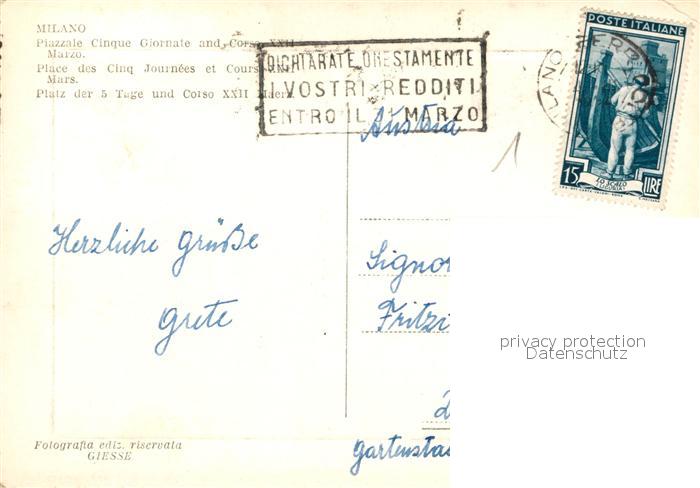 MILANO
Piazzale Cinque Giornate and Corso XXII
Marzo.
Place des Cinq Journées et Cours
Mars.
Platz der 5 Tage und Corso XXII Maerz
DICHIARATE ONESTAMENTE
I VOSTRI REDDITI
ENTRO IL 31 MARZO
POSTE ITALIANE
15 LIRE
Austria
Herzliche Grüße
Grete
Signor
Fritzi
Gartensta
privacy protection
Datenschutz
Fotografia ediz. riservata
GIESSE